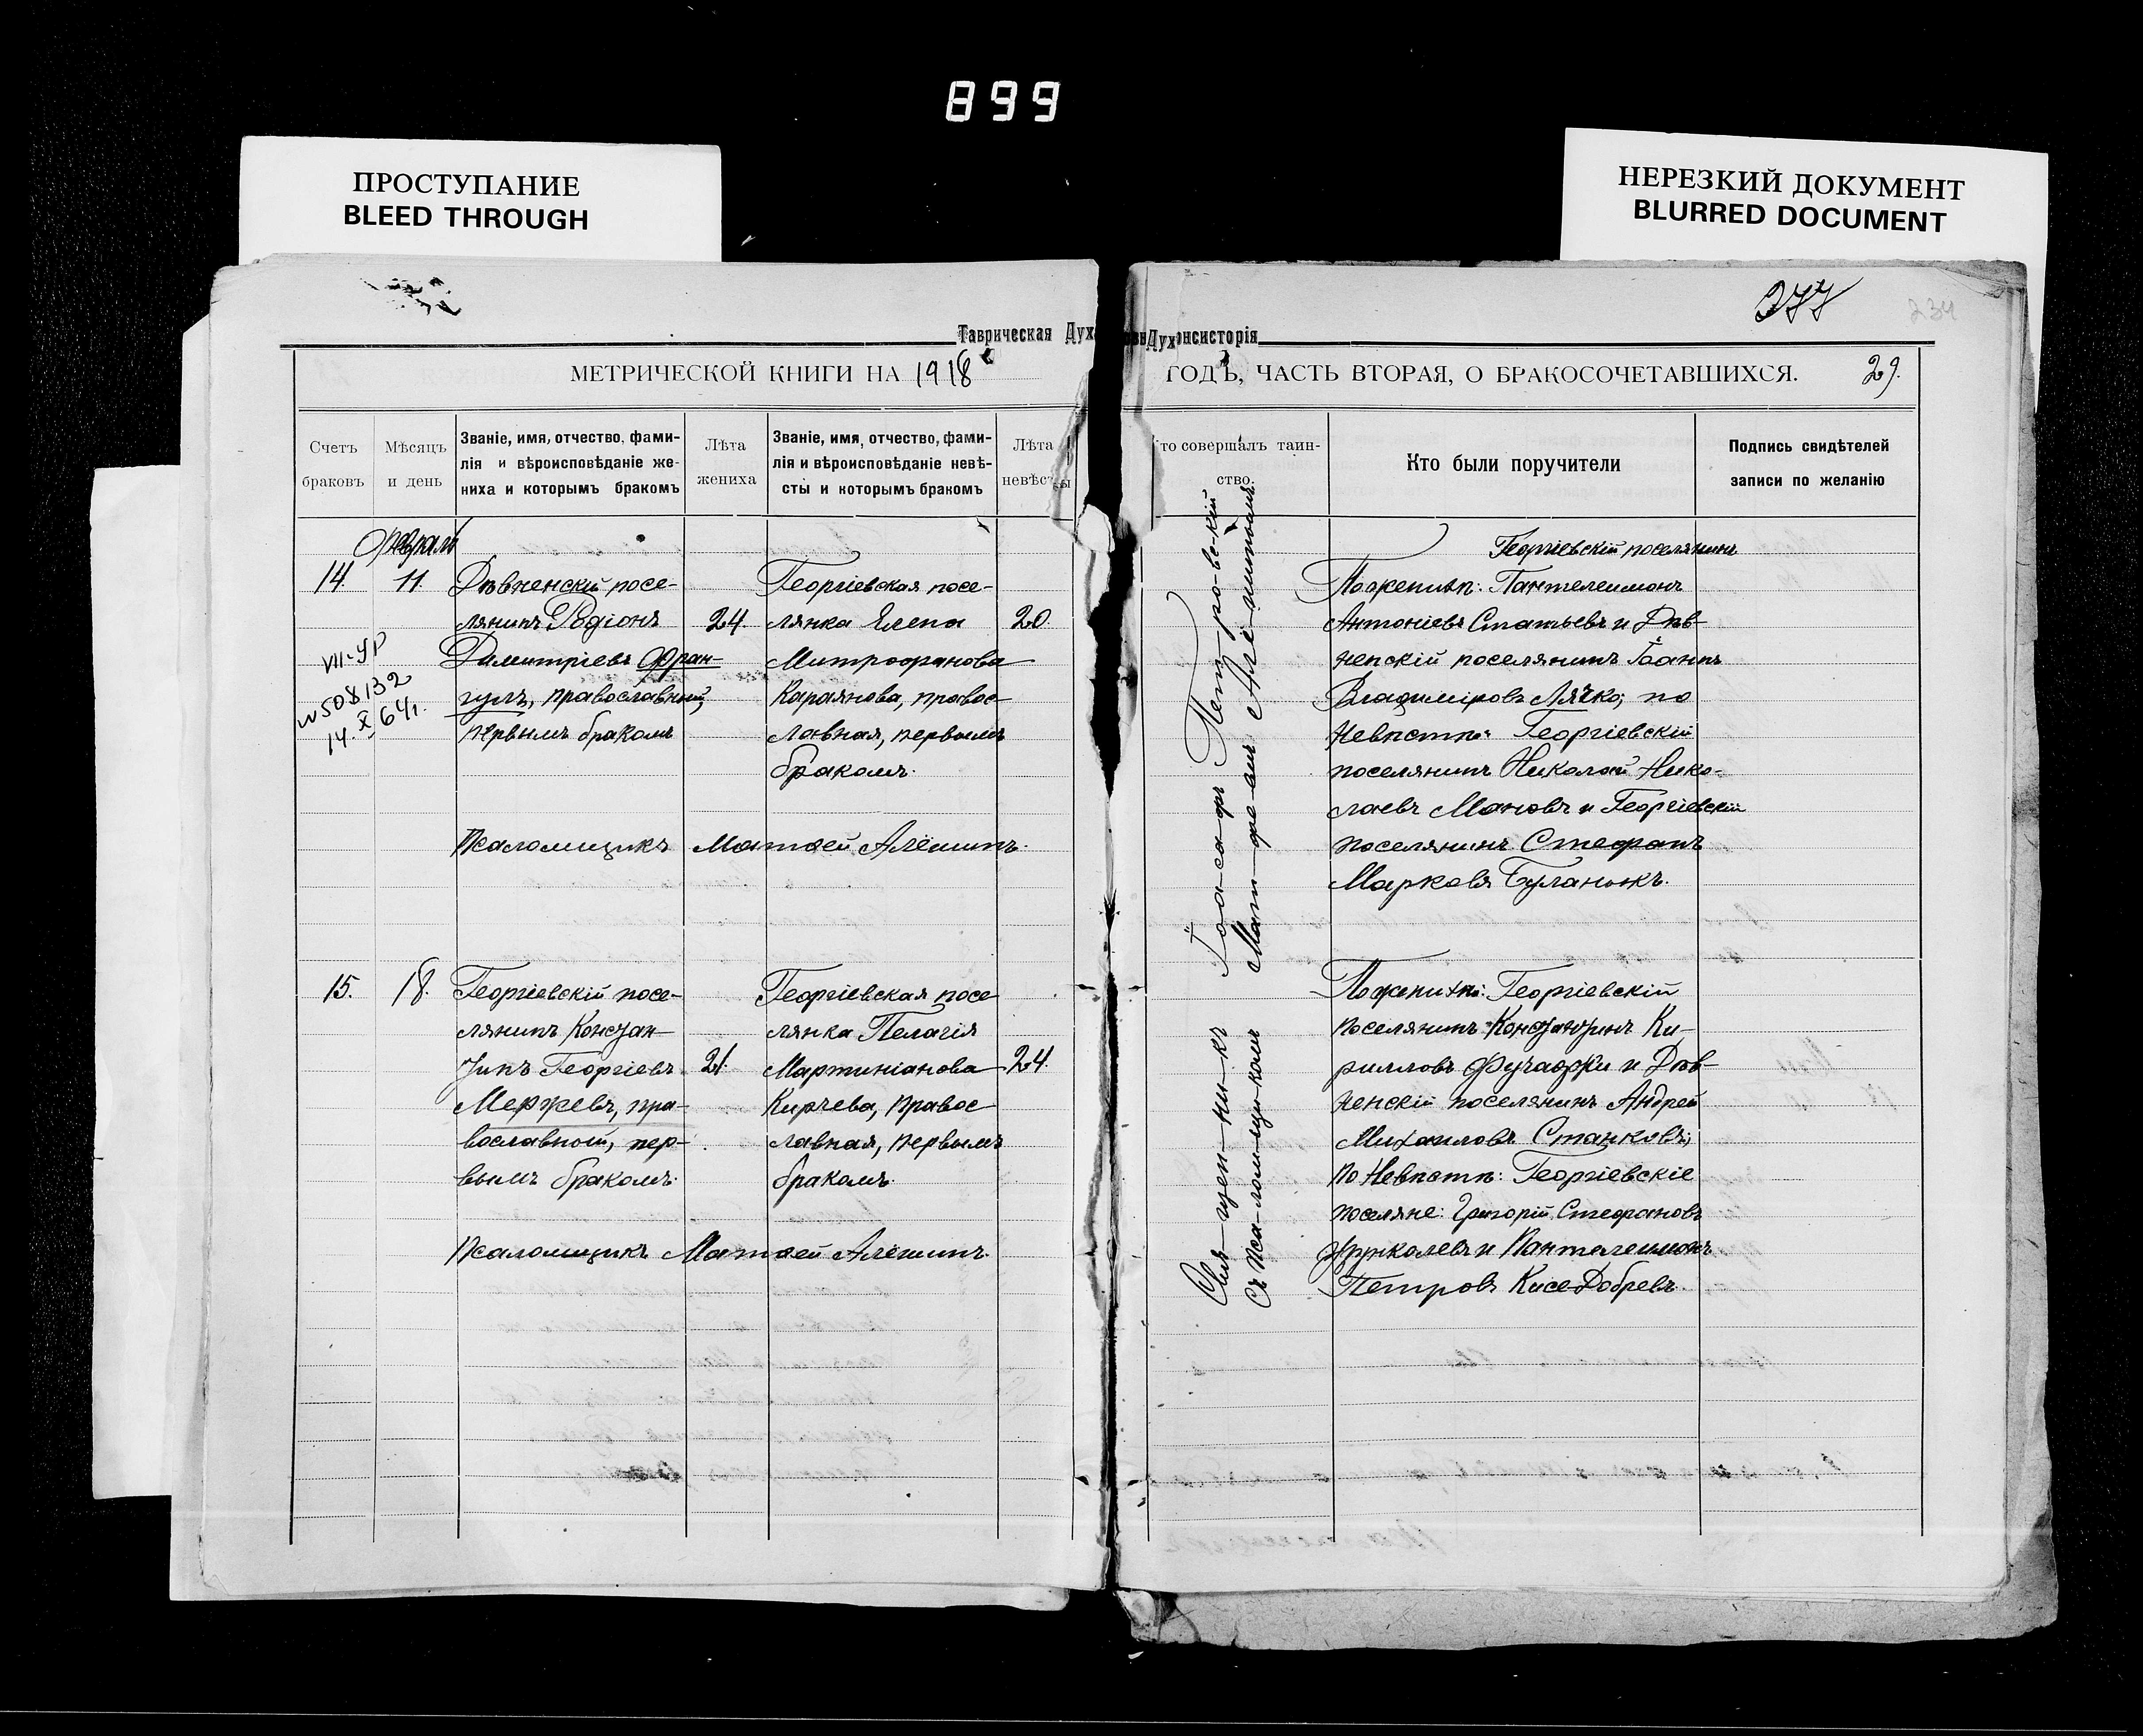 899
ПРОСТУПАНИЕ
BLEED THROUGH
НЕРЕЗКИЙ ДОКУМЕНТ
BLURRED DOCUMENT
277
234
Таврическая Дух
Духонсисторія
МЕТРИЧЕСКОЙ КНИГИ НА 1918
ГОДЪ, ЧАСТЬ ВТОРАЯ, О БРАКОСОЧЕТАВШИХСЯ.
29.
Счетъ браковъ
Мѣсяцъ и день
Званіе, имя, отчество, фами-
лія и вѣроисповѣданіе же-
ниха и которымъ бракомъ
Лѣта жениха
Званіе, имя, отчество, фами-
лія и вѣроисповѣданіе невѣ-
сты и которымъ бракомъ
Лѣта невѣсты
то совершалъ таин-
ство.
Кто были поручители
Подпись свидѣтелей
записи по желанію
Февраль
14. 11.
Дѣвненскій посе-
лянинъ Родіонъ
Димитріевъ Фран-
гулъ, православный,
первымъ бракомъ
24.
Георгіевская посе-
лянка Елена
Митрофанова
Караянова, правос-
лавная, первымъ
бракомъ.
20.
VII-УР
№508132
14.X 64г.
Псаломщикъ Матѳей Алёшинъ.
Священникъ Іоасафъ Петровскій
Съ псаломщикомъ Матфеемъ Алёшинымъ
Георгіевскій поселянинъ
По женихѣ: Пантелеимонъ
Антоніевъ Статьевъ и Дѣв-
ненскій поселянинъ Іоаннъ
Владиміровъ Лячко; по
невѣстѣ: Георгіевскій
поселянинъ Николай Нико-
лаевъ Мановъ и Георгіевскій
поселянинъ Стефанъ
Марковъ Буланокъ.
15. 18.
Георгіевскій посе-
лянинъ Констан-
тинъ Георгіевъ
Мержевъ, пра-
вославный, пер-
вымъ бракомъ.
21.
Георгіевская посе
лянка Пелагія
Мартиніанова
Кирчева, правос
лавная, первымъ
бракомъ.
24.
Псаломщикъ Матѳей Алёшинъ.
По женихѣ: Георгіевскій
поселянинъ Константинъ Ки-
рилловъ Фучаджи и Дѣв-
ненскій поселянинъ Андрей
Михаиловъ Станковъ;
по невѣстѣ: Георгіевскіе
поселяне: Григорій Стефановъ
и Пантелеимонъ
Петровъ Кисе-Добревъ.